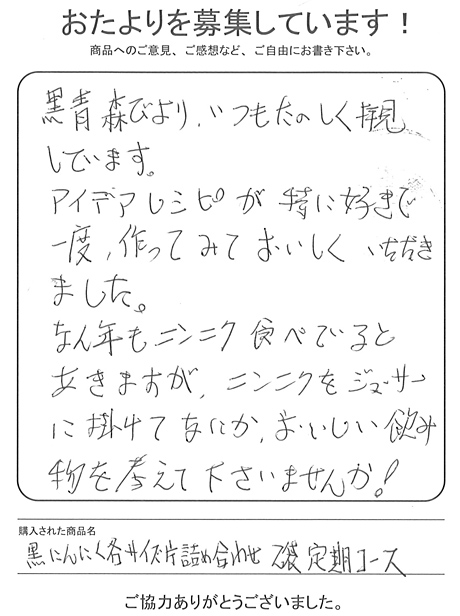 おたよりを募集しています！
商品へのご意見、ご感想など、ご自由にお書き下さい。
黒青森びより、いつもたのしく拝見
しています。
アイデアレシピが特に好きで
一度、作ってみておいしくいただき
ました。
なん年もニンニク食べていると
あきますが、ニンニクをジューサー
に掛けてなにか、おいしい飲み
物を考えて下さいませんか！
購入された商品名
黒にんにく各サイズ片詰め合わせ 2袋定期コース
ご協力ありがとうございました。